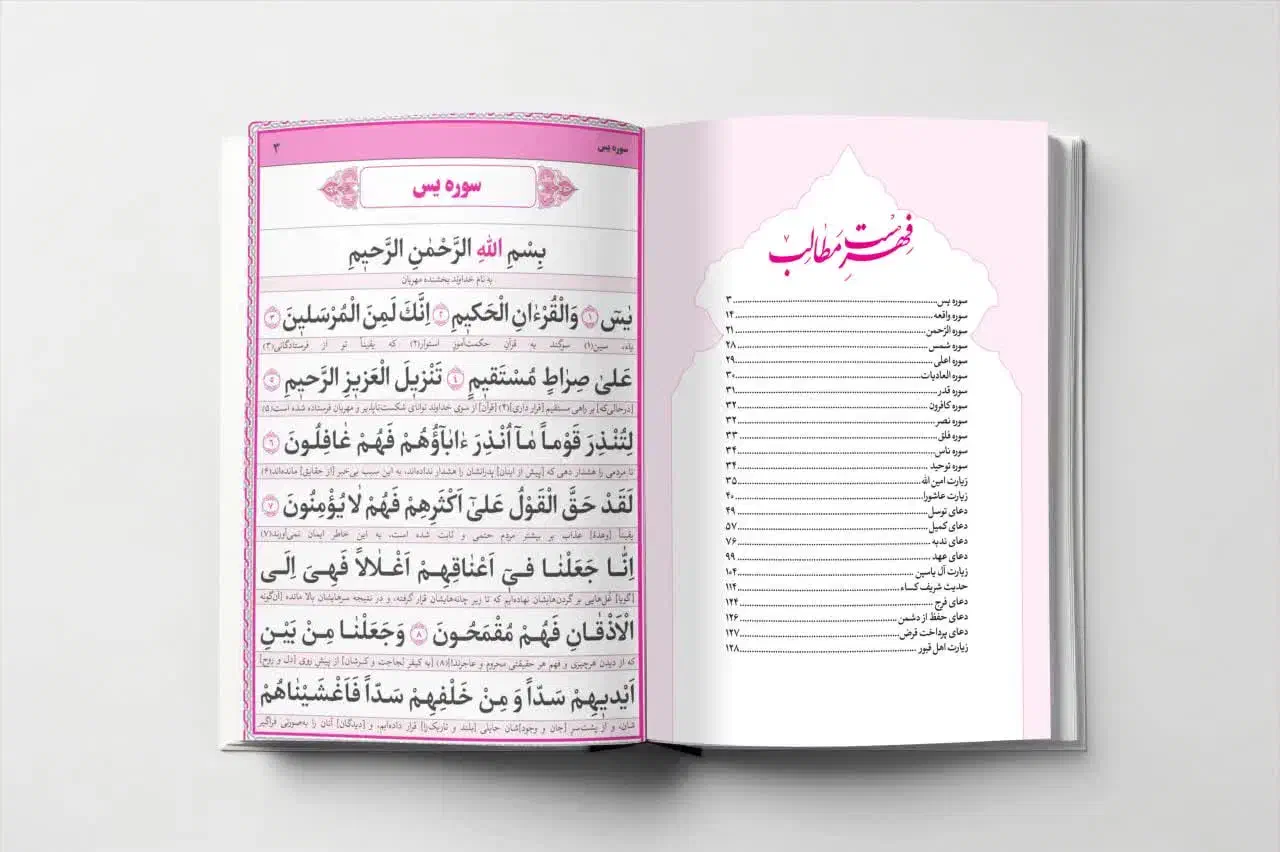 فهرست مطالب
سوره یس ... ۳
سوره واقعه ... ۱۴
سوره الرّحمن ... ۲۱
سوره شمس ... ۲۸
سوره اعلی ... ۲۹
سوره العادیات ... ۳۰
سوره قدر ... ۳۱
سوره کافرون ... ۳۲
سوره نصر ... ۳۲
سوره فلق ... ۳۳
سوره ناس ... ۳۴
سوره توحید ... ۳۴
زیارت امین الله ... ۳۵
زیارت عاشورا ... ۴۰
دعای توسل ... ۴۹
دعای کمیل ... ۵۷
دعای ندبه ... ۷۶
دعای عهد ... ۹۹
زیارت آل یاسین ... ۱۰۴
حدیث شریف کساء ... ۱۱۴
دعای فرج ... ۱۲۴
دعای حفظ از دشمن ... ۱۲۶
دعای پرداخت قرض ... ۱۲۷
زیارت اهل قبور ... ۱۲۸
سوره یس ۳
سوره یس
بِسْمِ اللّٰهِ الرَّحْمٰنِ الرَّحیٖمِ
به نام خداوند بخشنده مهربان
یٰسٓ ﴿۱﴾ وَالْقُرْءٰانِ الْحَکیٖمِ ﴿۲﴾ اِنَّکَ لَمِنَ الْمُرْسَلیٖنَ ﴿۳﴾
یاء، سین(۱) سوگند به قرآنِ حکمت‌آموزِ استوار(۲) که یقیناً تو از فرستادگانی(۳)
عَلیٰ صِرٰاطٍ مُسْتَقیٖمٍ ﴿۴﴾ تَنْزیٖلَ الْعَزیٖزِ الرَّحیٖمِ ﴿۵﴾
[درحالی‌که] بر راهی مستقیم [قرار داری](۴) [قرآن] از سوی خداوند توانای شکست‌ناپذیر و مهربان فرستاده شده است(۵)
لِتُنْذِرَ قَوْماً مٰٓا اُنْذِرَ ءٰابٰٓاؤُهُمْ فَهُمْ غٰافِلُونَ ﴿۶﴾
تا مردمی را هشدار دهی که [پیش از اینان] پدرانشان را هشدار نداده‌اند، به این سبب بی‌خبر [از حقایق] مانده‌اند(۶)
لَقَدْ حَقَّ الْقَوْلُ عَلیٰٓ اَکْثَرِهِمْ فَهُمْ لٰا یُؤْمِنُونَ ﴿۷﴾
یقیناً [وعدۀ] عذاب بر بیشتر مردم حتمی و ثابت شده است، به این خاطر ایمان نمی‌آورند(۷)
اِنّٰا جَعَلْنٰا فیٖٓ اَعْنٰاقِهِمْ اَغْلٰالاً فَهِیَ اِلَی
[گویا] غُل‌هایی بر گردن‌هایشان نهاده‌ایم که تا زیر چانه‌هایشان قرار گرفته، و در نتیجه سرهایشان بالا مانده [آن‌گونه
الْاَذْقٰانِ فَهُمْ مُقْمَحُونَ ﴿۸﴾ وَ جَعَلْنٰا مِنْ بَیْنِ
که از دیدن هرچیزی و فهم هر حقیقتی محروم و عاجزند](۸) [به کیفر لجاجت و کبرشان] از پیشِ روی [دل و روح]
اَیْدیٖهِمْ سَدّاً وَ مِنْ خَلْفِهِمْ سَدّاً فَاَغْشَیْنٰاهُمْ
شان، و از پشت‌سرِ [جان و وجود]شان حایلی [بلند و تاریک‌زا] قرار داده‌ایم، و [دیدگان] آنان را به‌صورتی فراگیر